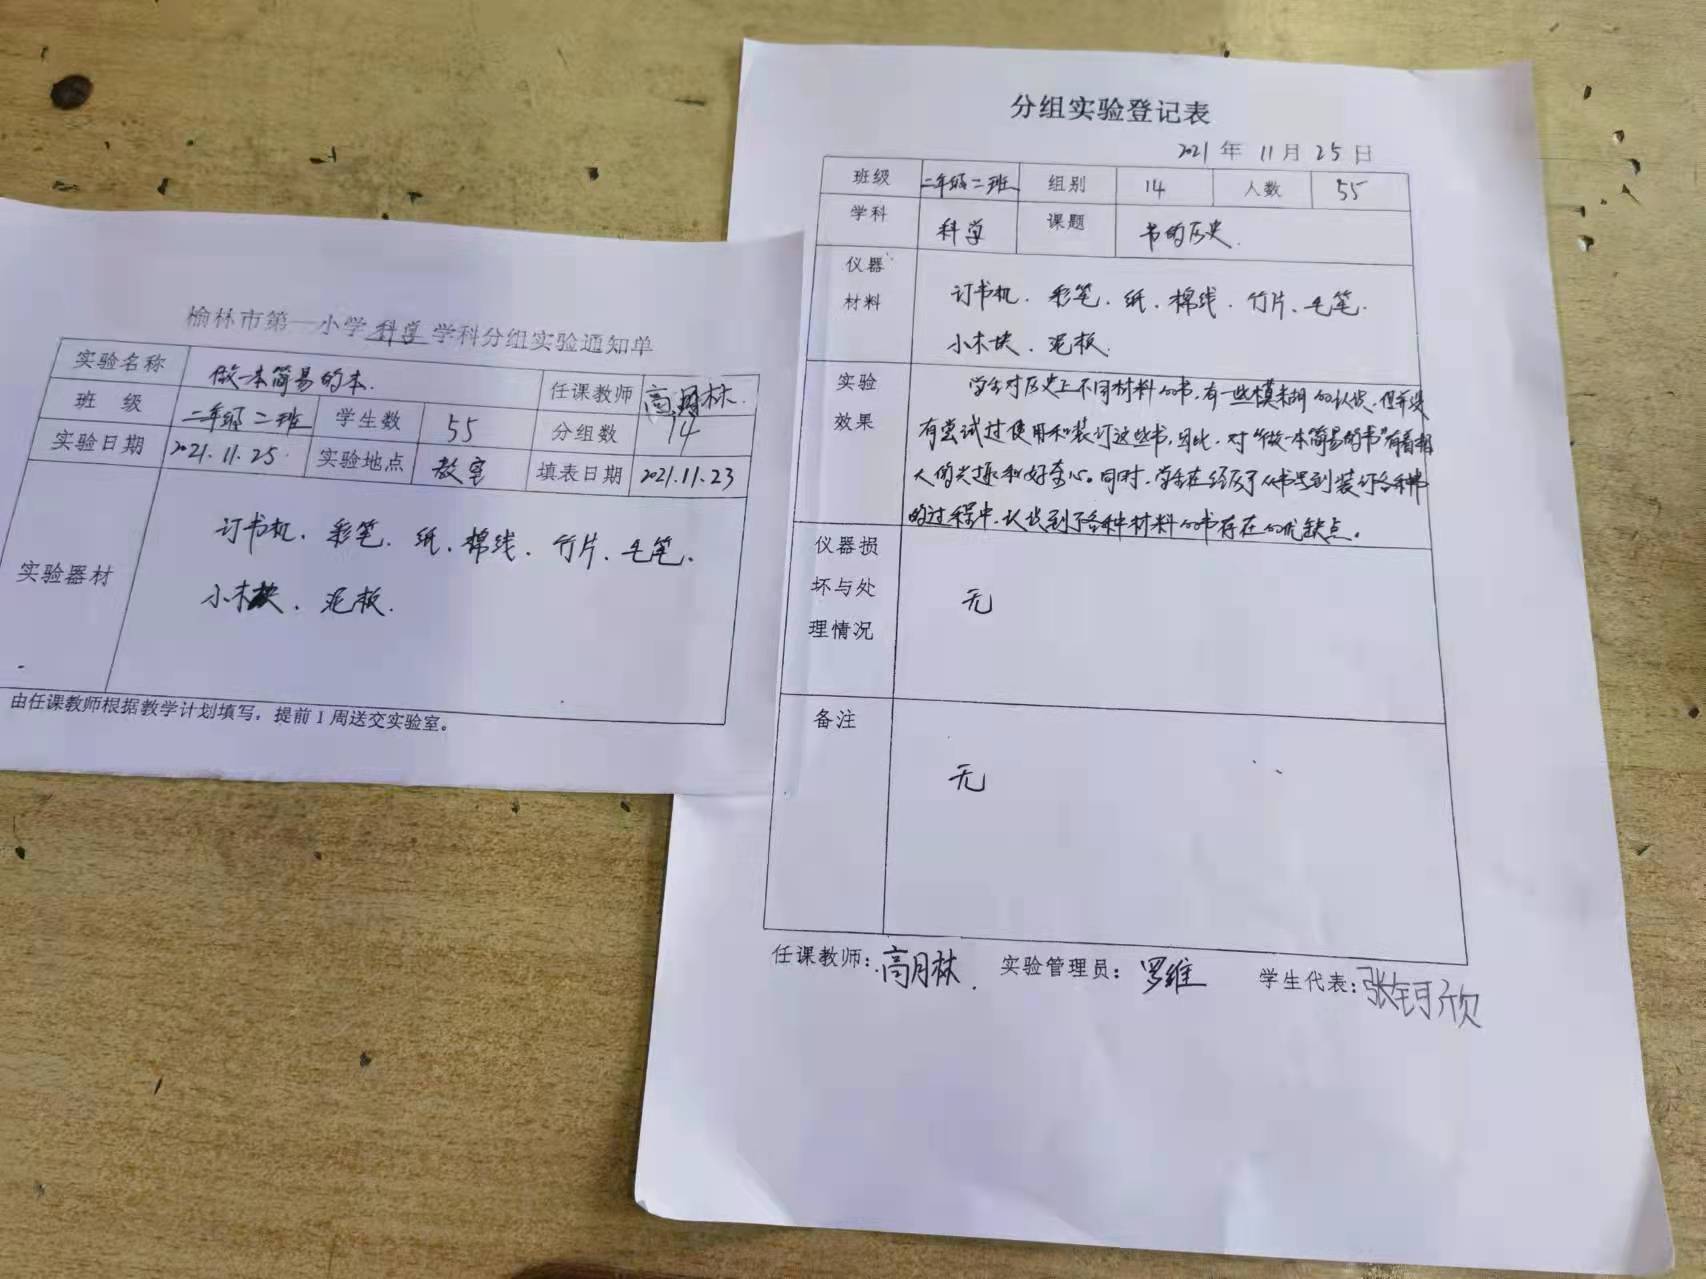 榆林市第一小学科学学科分组实验通知单
实验名称 做一本简易的本. 任课教师 高月林.
班 级 二年级二班 学生数 55 分组数 14
实验日期 2021.11.25. 实验地点 教室 填表日期 2021.11.23
实验器材 订书机、彩笔、纸、棉线、竹片、毛笔、
小木块、泥板.
由任课教师根据教学计划填写，提前1周送交实验室。
分组实验登记表
2021 年 11 月 25 日
班级 二年级二班 组别 14 人数 55
学科 科学 课题 书的历史.
仪器
材料
订书机、彩笔、纸、棉线、竹片、毛笔.
小木块、泥板.
实验
效果
学生对历史上不同材料的书，有一些模糊的认识，但并没
有尝试过使用和装订这些书，因此，对“做一本简易的书”有着
人的兴趣和好奇心。同时，学生在经历了从书写到装订各种书
的过程中，认识到了各种材料的书存在的优缺点。
仪器损
坏与处
理情况
无
备注
无
任课教师：高月林. 实验管理员：罗维 学生代表：张钶欣